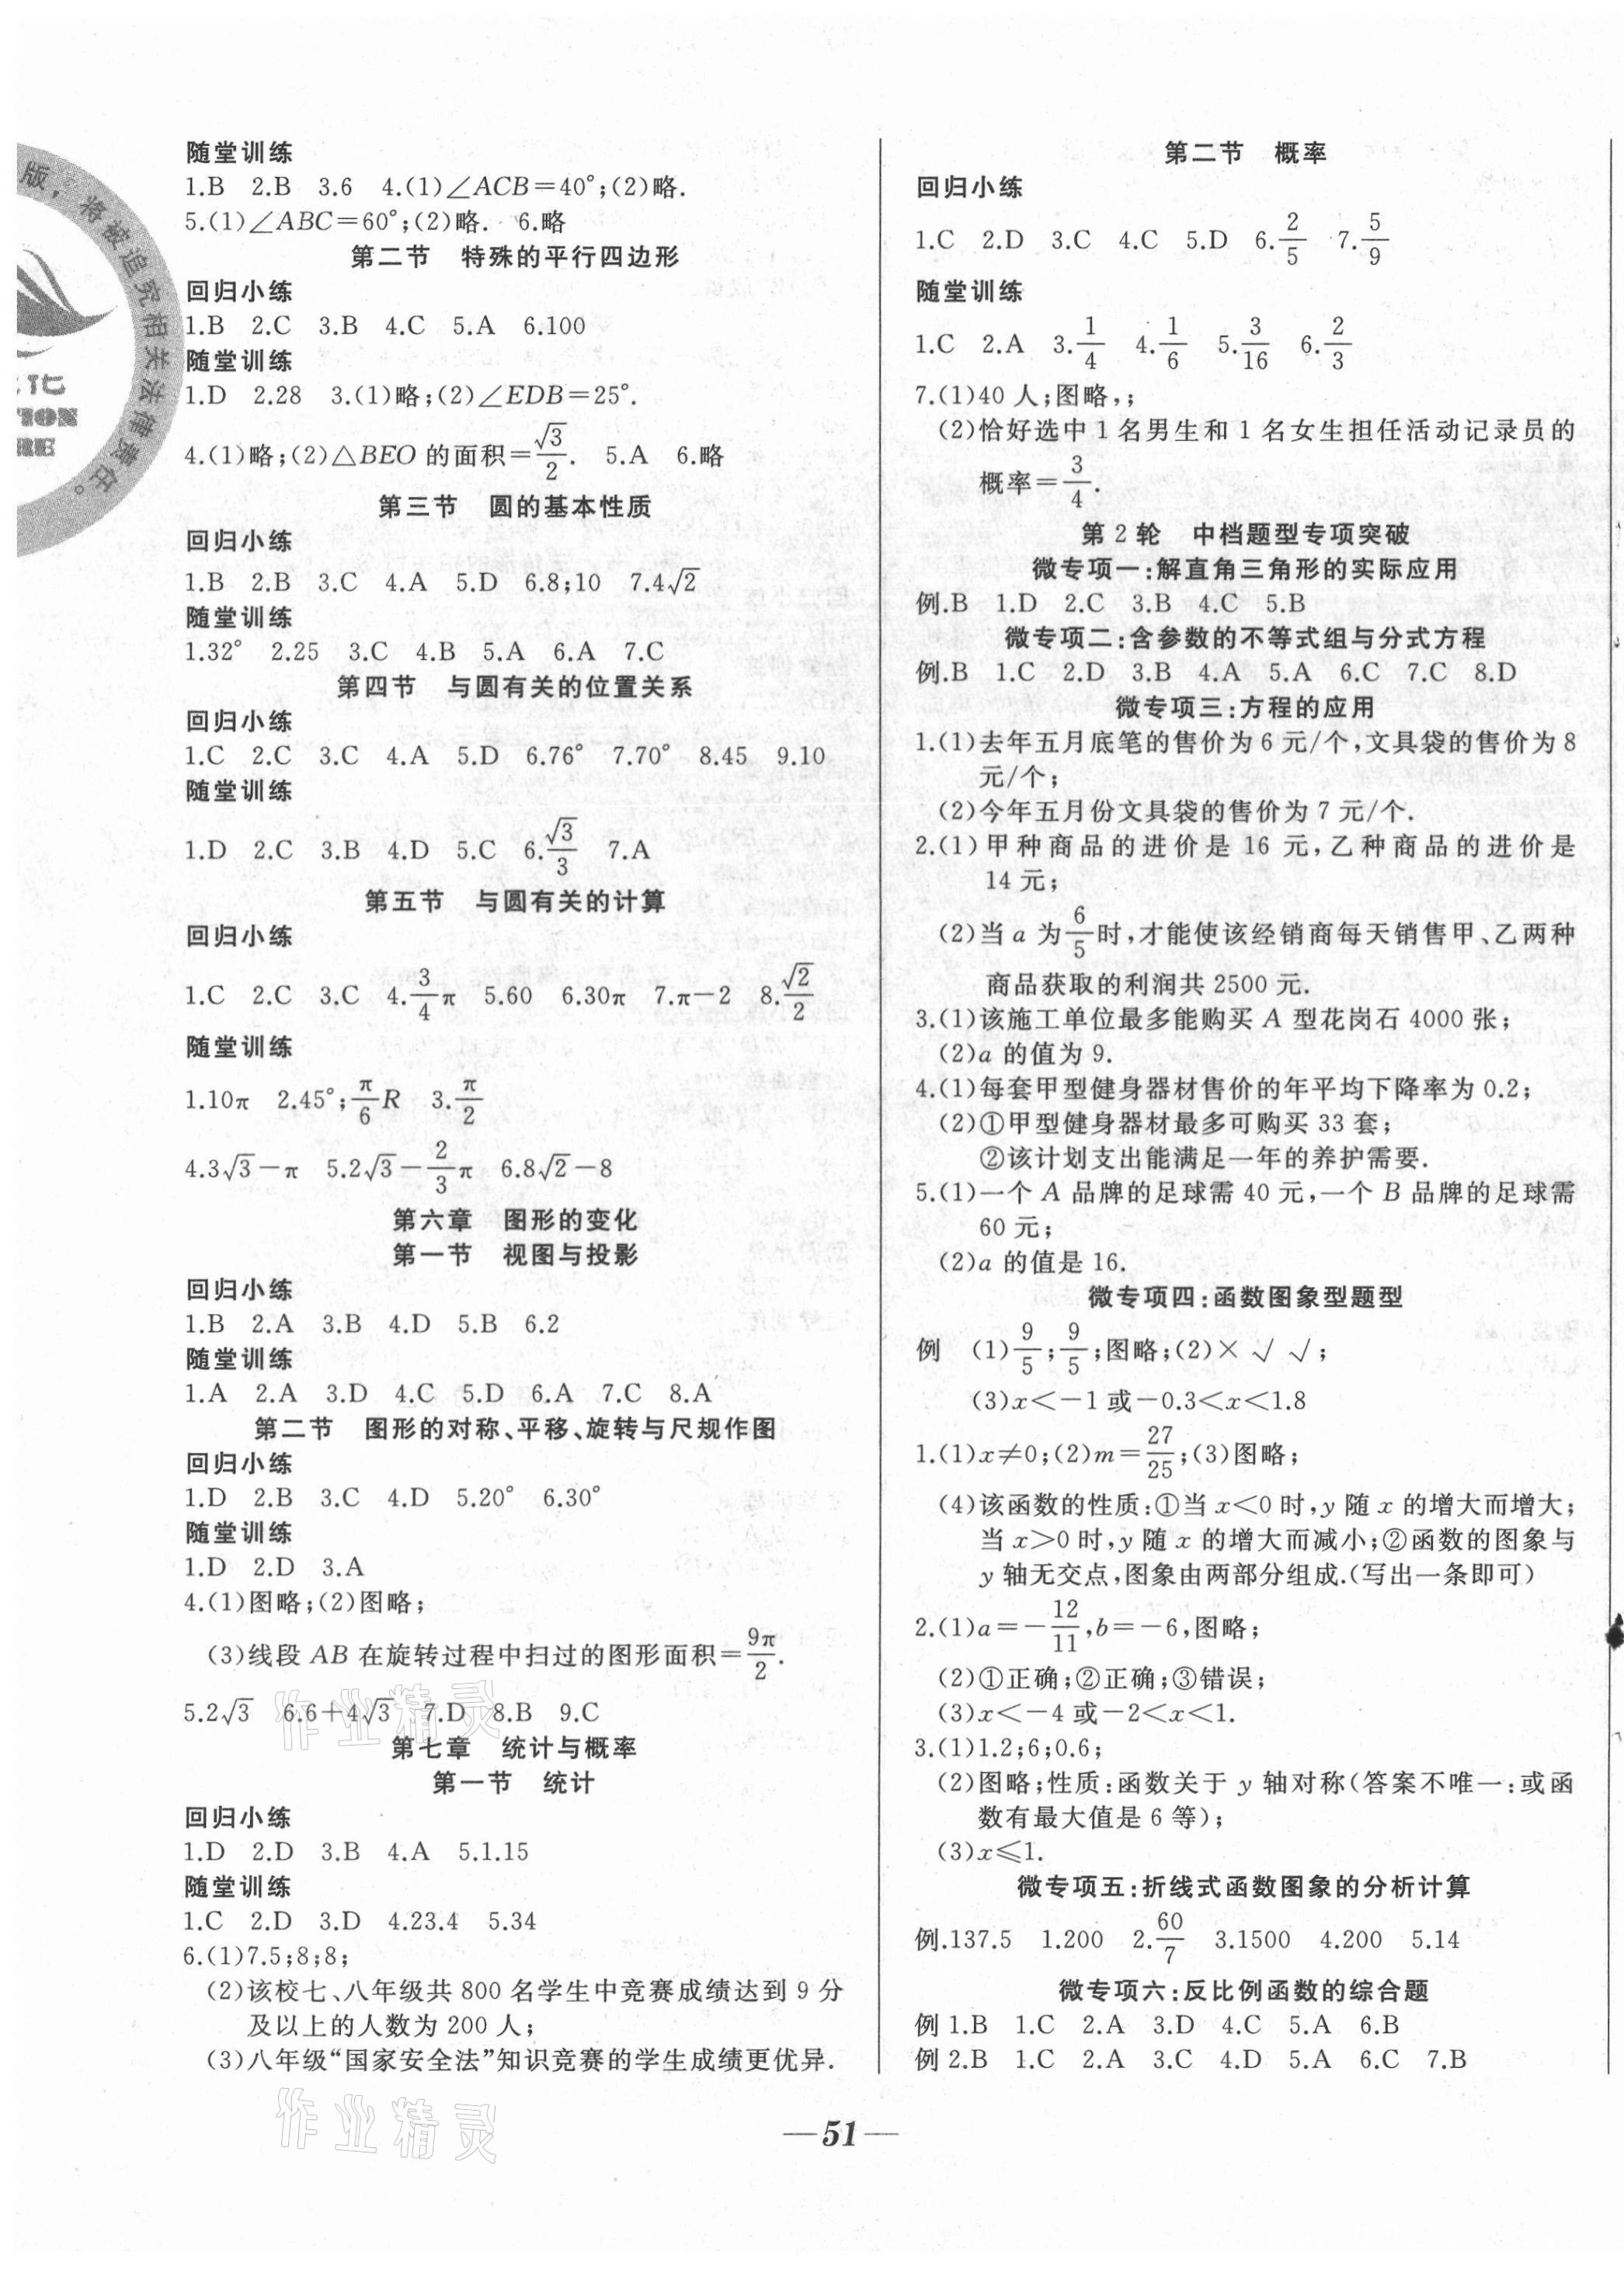 随堂训练
1.B 2.B 3.6 4.(1)∠ACB=40°;(2)略.
5.(1)∠ABC=60°;(2)略. 6.略
第二节 特殊的平行四边形
回归小练
1.B 2.C 3.B 4.C 5.A 6.100
随堂训练
1.D 2.28 3.(1)略;(2)∠EDB=25°.
4.(1)略;(2)△BEO 的面积=√3/2. 5.A 6.略
第三节 圆的基本性质
回归小练
1.B 2.B 3.C 4.A 5.D 6.8;10 7.4√2
随堂训练
1.32° 2.25 3.C 4.B 5.A 6.A 7.C
第四节 与圆有关的位置关系
回归小练
1.C 2.C 3.C 4.A 5.D 6.76° 7.70° 8.45 9.10
随堂训练
1.D 2.C 3.B 4.D 5.C 6.√3/3 7.A
第五节 与圆有关的计算
回归小练
1.C 2.C 3.C 4.3/4π 5.60 6.30π 7.π-2 8.√2/2
随堂训练
1.10π 2.45°;π/6R 3.π/2
4.3√3-π 5.2√3-2/3π 6.8√2-8
第六章 图形的变化
第一节 视图与投影
回归小练
1.B 2.A 3.B 4.D 5.B 6.2
随堂训练
1.A 2.A 3.D 4.C 5.D 6.A 7.C 8.A
第二节 图形的对称、平移、旋转与尺规作图
回归小练
1.D 2.B 3.C 4.D 5.20° 6.30°
随堂训练
1.D 2.D 3.A
4.(1)图略;(2)图略;
(3)线段 AB 在旋转过程中扫过的图形面积=9π/2.
5.2√3 6.6+4√3 7.D 8.B 9.C
第七章 统计与概率
第一节 统计
回归小练
1.D 2.D 3.B 4.A 5.1.15
随堂训练
1.C 2.D 3.D 4.23.4 5.34
6.(1)7.5;8;8;
(2)该校七、八年级共 800 名学生中竞赛成绩达到 9 分
及以上的人数为 200 人;
(3)八年级“国家安全法”知识竞赛的学生成绩更优异.
第二节 概率
回归小练
1.C 2.D 3.C 4.C 5.D 6.2/5 7.5/9
随堂训练
1.C 2.A 3.1/4 4.1/6 5.3/16 6.2/3
7.(1)40 人;图略,;
(2)恰好选中 1 名男生和 1 名女生担任活动记录员的
概率=3/4.
第 2 轮 中档题型专项突破
微专项一:解直角三角形的实际应用
例.B 1.D 2.C 3.B 4.C 5.B
微专项二:含参数的不等式组与分式方程
例.B 1.C 2.D 3.B 4.A 5.A 6.C 7.C 8.D
微专项三:方程的应用
1.(1)去年五月底笔的售价为 6 元/个,文具袋的售价为 8
元/个;
(2)今年五月份文具袋的售价为 7 元/个.
2.(1)甲种商品的进价是 16 元,乙种商品的进价是
14 元;
(2)当 a 为6/5时,才能使该经销商每天销售甲、乙两种
商品获取的利润共 2500 元.
3.(1)该施工单位最多能购买 A 型花岗石 4000 张;
(2)a 的值为 9.
4.(1)每套甲型健身器材售价的年平均下降率为 0.2;
(2)①甲型健身器材最多可购买 33 套;
②该计划支出能满足一年的养护需要.
5.(1)一个 A 品牌的足球需 40 元,一个 B 品牌的足球需
60 元;
(2)a 的值是 16.
微专项四:函数图象型题型
例 (1)9/5;9/5;图略;(2)× √ √;
(3)x<-1 或-0.3<x<1.8
1.(1)x≠0;(2)m=27/25;(3)图略;
(4)该函数的性质:①当 x<0 时,y 随 x 的增大而增大;
当 x>0 时,y 随 x 的增大而减小;②函数的图象与
y 轴无交点,图象由两部分组成.(写出一条即可)
2.(1)a=-12/11,b=-6,图略;
(2)①正确;②正确;③错误;
(3)x<-4 或-2<x<1.
3.(1)1.2;6;0.6;
(2)图略;性质:函数关于 y 轴对称(答案不唯一:或函
数有最大值是 6 等);
(3)x⩽1.
微专项五:折线式函数图象的分析计算
例.137.5 1.200 2.60/7 3.1500 4.200 5.14
微专项六:反比例函数的综合题
例 1.B 1.C 2.A 3.D 4.C 5.A 6.B
例 2.B 1.C 2.A 3.C 4.D 5.A 6.C 7.B
—51—
版,将被追究相关法律责任。
作业精灵
作业精灵